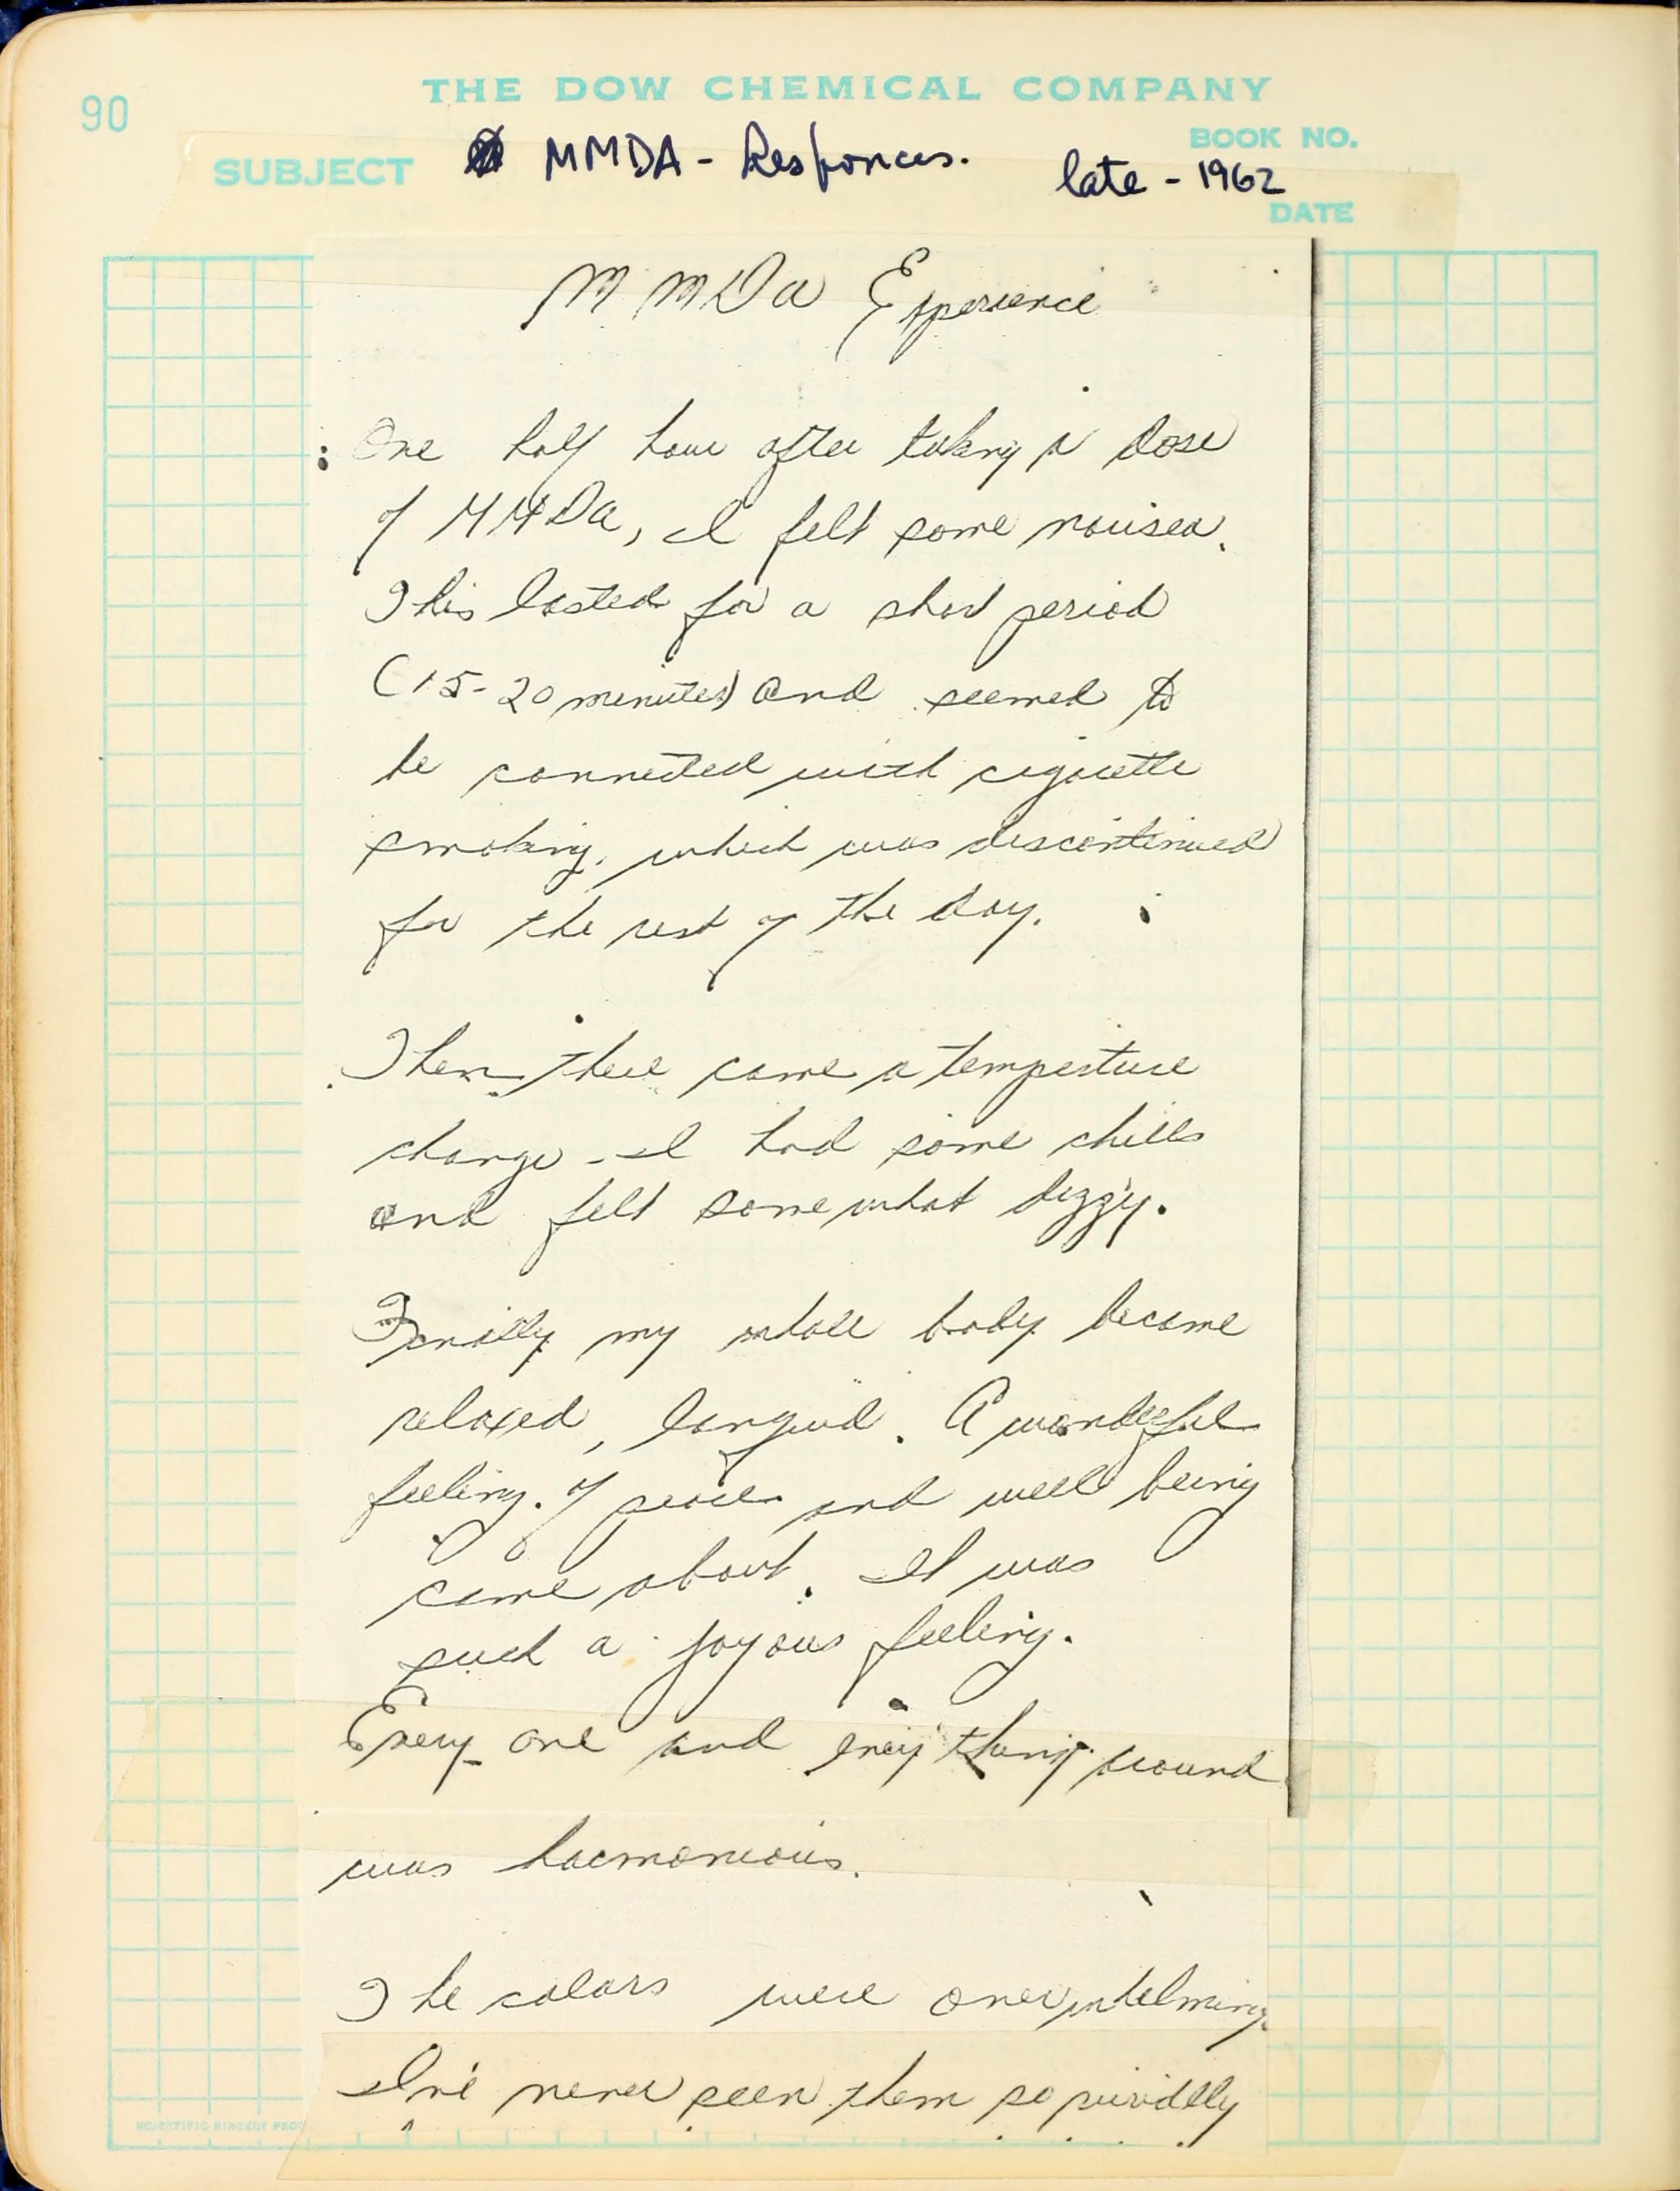 90
THE DOW CHEMICAL COMPANY
BOOK NO.
SUBJECT MMDA - Responces.
late - 1962
DATE
MMDa Experience
One half hour after taking a dose
of MMDa, I felt some nausea.
This lasted for a short period
(15-20 minutes) and seemed to
be connected with cigarette
smoking, which was discontinued
for the rest of the day.
Then there came a temperture
change - I had some chills
and felt somewhat dizzy.
Finally my whole body became
relaxed, languid. A wonderful
feeling of peace and well being
came about. It was
such a joyous feeling.
Every one and every thing around
was harmonious.
The colors were overwhelming.
I've never seen them so vividly